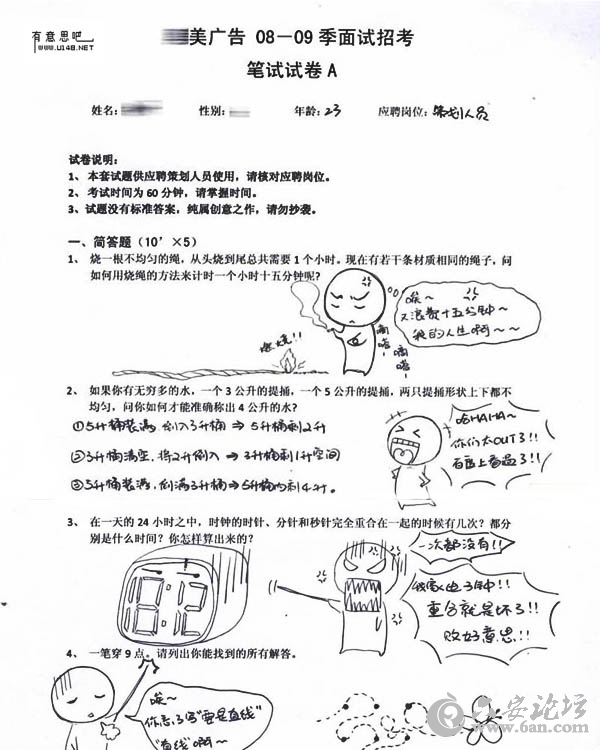 有意思吧
www.U148.NET
美广告 08－09 季面试招考
笔试试卷 A
姓名：
性别：
年龄：23
应聘岗位：策划人员
试卷说明：
1、 本套试题供应聘策划人员使用，请核对应聘岗位。
2、 考试时间为 60 分钟，请掌握时间。
3、试题没有标准答案，纯属创意之作，请勿抄袭。
一、简答题（10’×5）
1、 烧一根不均匀的绳，从头烧到尾总共需要 1 个小时。现在有若干条材质相同的绳子，问
如何用烧绳的方法来计时一个小时十五分钟呢?
唉~
又浪费十五分钟~
我的人生啊~~
燃烧!!
滴嗒
滴嗒
2、 如果你有无穷多的水，一个 3 公升的提捅，一个 5 公升的提捅，两只提捅形状上下都不
均匀，问你如何才能准确称出 4 公升的水?
①5升桶装满，倒入3升桶⇒5升桶剩2升
②3升桶清空，将2升倒入⇒3升桶剩1升空间
③5升桶装满，倒满3升桶⇒5升桶内剩4升。
哈HAHA~
你们太OUT了!!
百度上看逼了!!
3、 在一天的 24 小时之中，时钟的时针、分针和秒针完全重合在一起的时候有几次? 都分
别是什么时间? 你怎样算出来的?
一次都没有!!
18:12
我家电子钟!!
重合就是坏了!!
败好意思!!
4、 一笔穿 9 点。请列出你能找到的所有解答。
唉~
你忘了写"要是直线"
"直线"啊~
六安论坛
www.6an.com